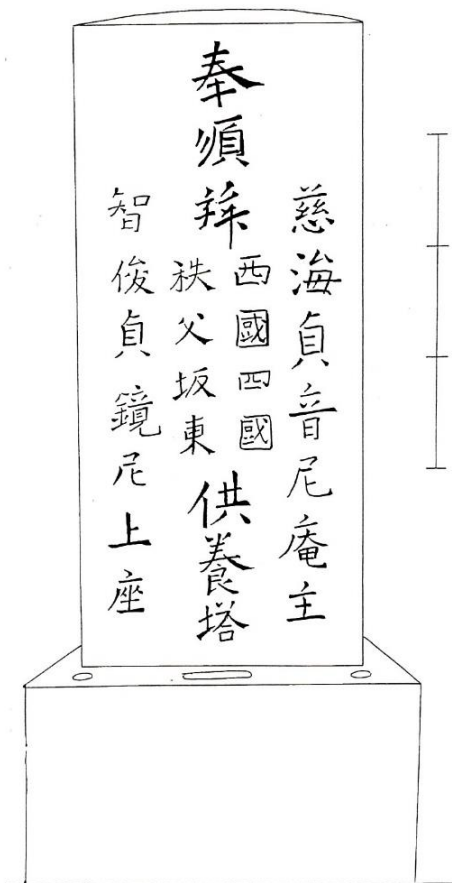 慈海貞音尼庵主
奉順拜
西國四國
秩父坂東
供養塔
智俊貞鏡尼上座